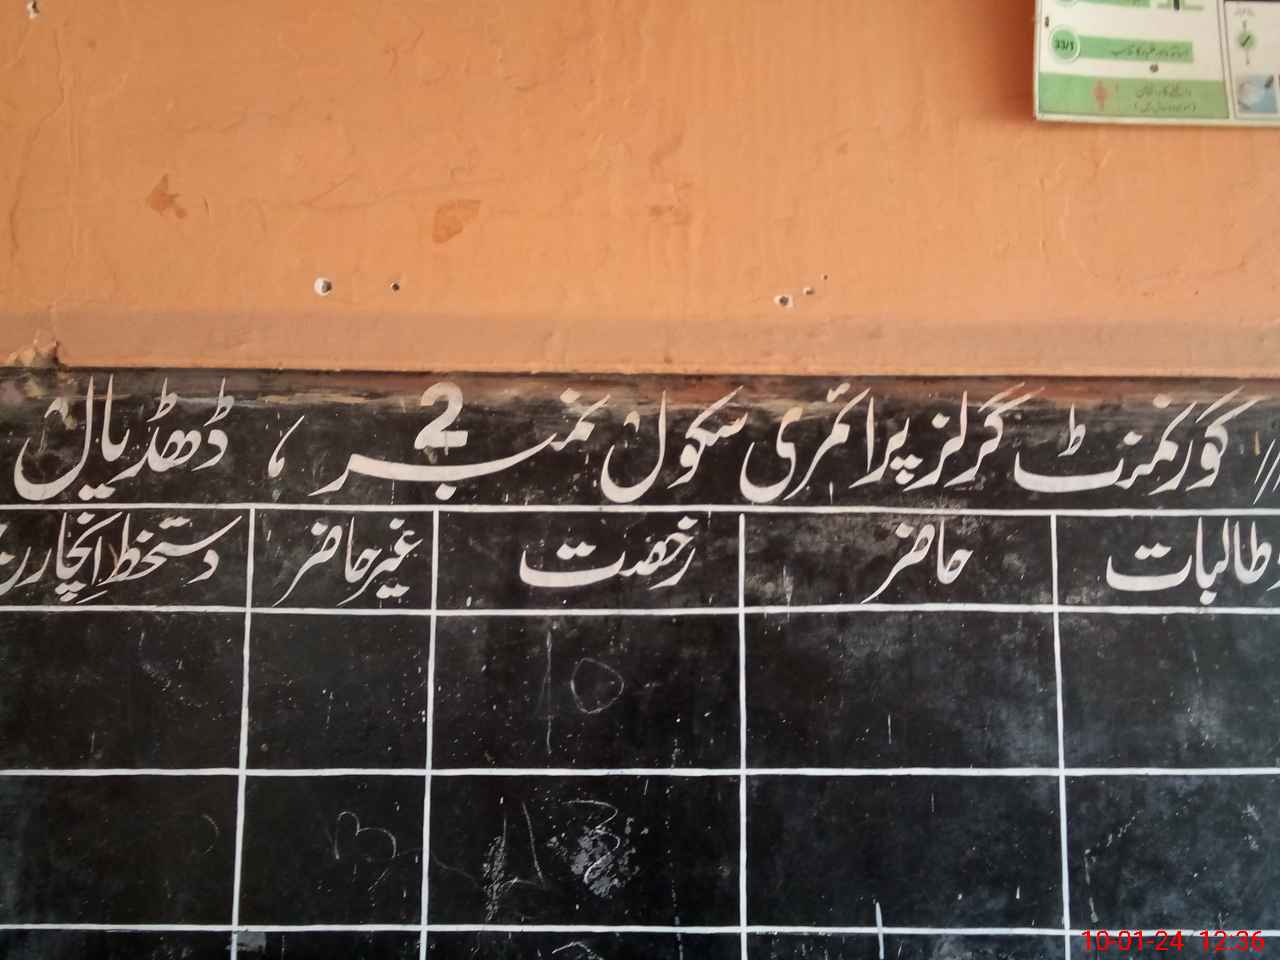 33/1
// گورنمنٹ گرلز پرائمری سکول نمبر 2 ، ڈھڈیال
طالبات حاضر رخصت غیرحاضر دستخط اِنچارج
10
3
13
10-01-24 12:36